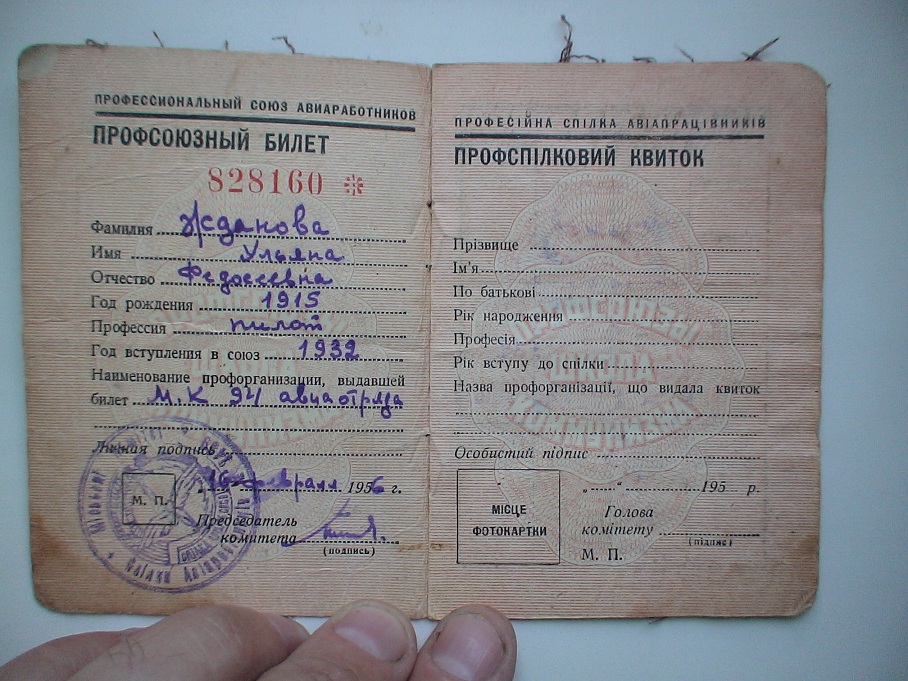 ПРОФЕССИОНАЛЬНЫЙ СОЮЗ АВИАРАБОТНИКОВ
ПРОФСОЮЗНЫЙ БИЛЕТ
828160 *
Фамилия Жданова
Имя Ульяна
Отчество Федосеевна
Год рождения 1915
Профессия пилот
Год вступления в союз 1932
Наименование профорганизации, выдавшей
билет М.К 94 авиаотряда
Личная подпись
М. П.
„16“ февраля 1956 г.
Председатель
комитета
(подпись)
ПРОФЕСІЙНА СПІЛКА АВІАПРАЦІВНИКІВ
ПРОФСПІЛКОВИЙ КВИТОК
Прізвище
Ім'я
По батькові
Рік народження
Професія
Рік вступу до спілки
Назва профорганізації, що видала квиток
ПРОФСОЮЗЫ
ШКОЛА
КОММУНИЗМА
Особистий підпис
МІСЦЕ
ФОТОКАРТКИ
„ “ 195 р.
Голова
комітету
(підпис)
М. П.